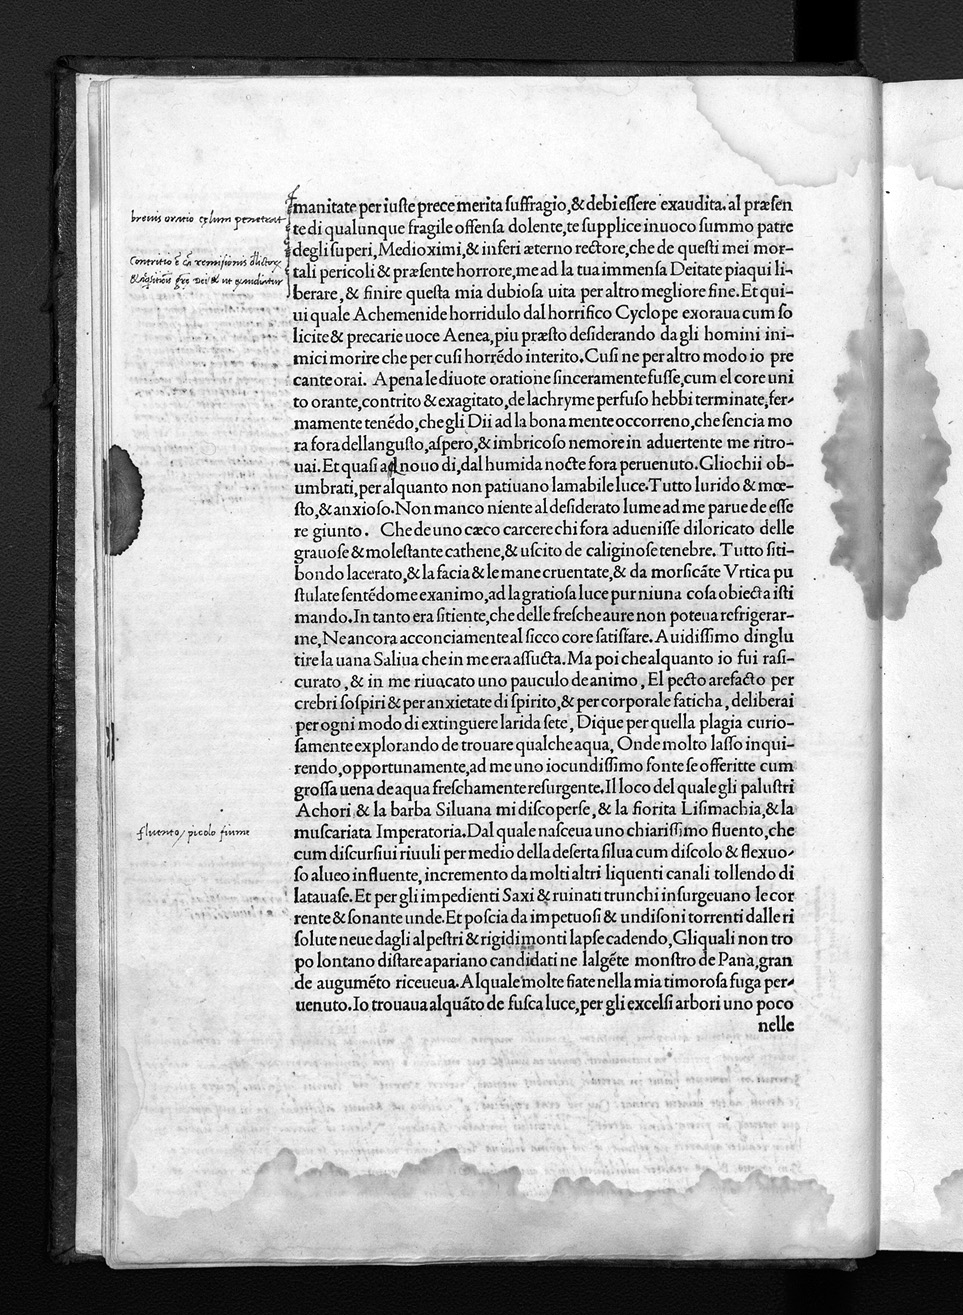 breuis oratio cęlum penetrat
Contritio
fluento / picolo fiume
manitate per iuste prece merita suffragio,& debi essere exaudita. al præsen
te di qualunque fragile offensa dolente, te supplice inuoco summo patre
degli superi, Medioximi, & inferi æterno rectore, che de questi mei mor-
tali pericoli & præsente horrore, me ad la tua immensa Deitate piaqui li-
berare, & finire questa mia dubiosa uita per altro megliore fine. Et qui-
ui quale Achemenide horridulo dal horrifico Cyclope exoraua cum so
licite & precarie uoce Aenea, piu præsto desiderando da gli homini ini-
mici morire che per cusi horrẽdo interito. Cusi ne per altro modo io pre
cante orai. Apena le diuote oratione sinceramente fusse, cum el core uni
to orante, contrito & exagitato, de lachryme perfuso hebbi terminate, fer-
mamente tenẽdo, che gli Dii ad la bona mente occorreno, che sencia mo
ra fora dellangusto, aspero, & imbricoso nemore in aduertente me ritro-
uai. Et quasi al nouo di, dal humida nocte fora peruenuto. Gliochii ob-
umbrati, per alquanto non patiuano lamabile luce. Tutto lurido & mœ-
sto, & anxioso. Non manco niente al desiderato lume ad me parue de esse
re giunto. Che de uno cæco carcere chi fora aduenisse diloricato delle
grauose & molestante cathene, & uscito de caliginose tenebre. Tutto siti-
bondo lacerato, & la facia & le mane cruentate, & da morsicãte Vrtica pu
stulate sentẽdome exanimo, ad la gratiosa luce pur niuna cosa obiecta isti
mando. In tanto era sitiente, che delle fresche aure non poteua refrigerar-
me, Ne ancora acconciamente al sicco core satisfare. Auidissimo dinglu
tire la uana Saliua che in me era assucta. Ma poi che alquanto io fui rasi-
curato, & in me riuocato uno pauculo de animo, El pecto arefacto per
crebri sospiri & per anxietate di spirito, & per corporale faticha, deliberai
per ogni modo di extinguere larida sete, Dique per quella plagia curio-
samente explorando de trouare qualche aqua, Onde molto lasso inqui-
rendo, opportunamente, ad me uno iocundissimo fonte se offeritte cum
grossa uena de aqua freschamente resurgente. Il loco del quale gli palustri
Achori & la barba Siluana mi discoperse, & la fiorita Lisimachia, & la
muscariata Imperatoria. Dal quale nasceua uno chiarissimo fluento, che
cum discursiui riuuli per medio della deserta silua cum discolo & flexuo-
so alueo influente, incremento da molti altri liquenti canali tollendo di
latauase. Et per gli impedienti Saxi & ruinati trunchi insurgeuano le cor
rente & sonante unde. Et poscia da impetuosi & undisoni torrenti dalle ri
solute neue dagli alpestri & rigidi monti lapse cadendo, Gli quali non tro
po lontano distare apariano candidati ne lalgẽte monstro de Pana, gran
de augumẽto riceueua. Al quale molte fiate nella mia timorosa fuga per-
uenuto. Io trouaua alquãto de fusca luce, per gli excelsi arbori uno poco
nelle